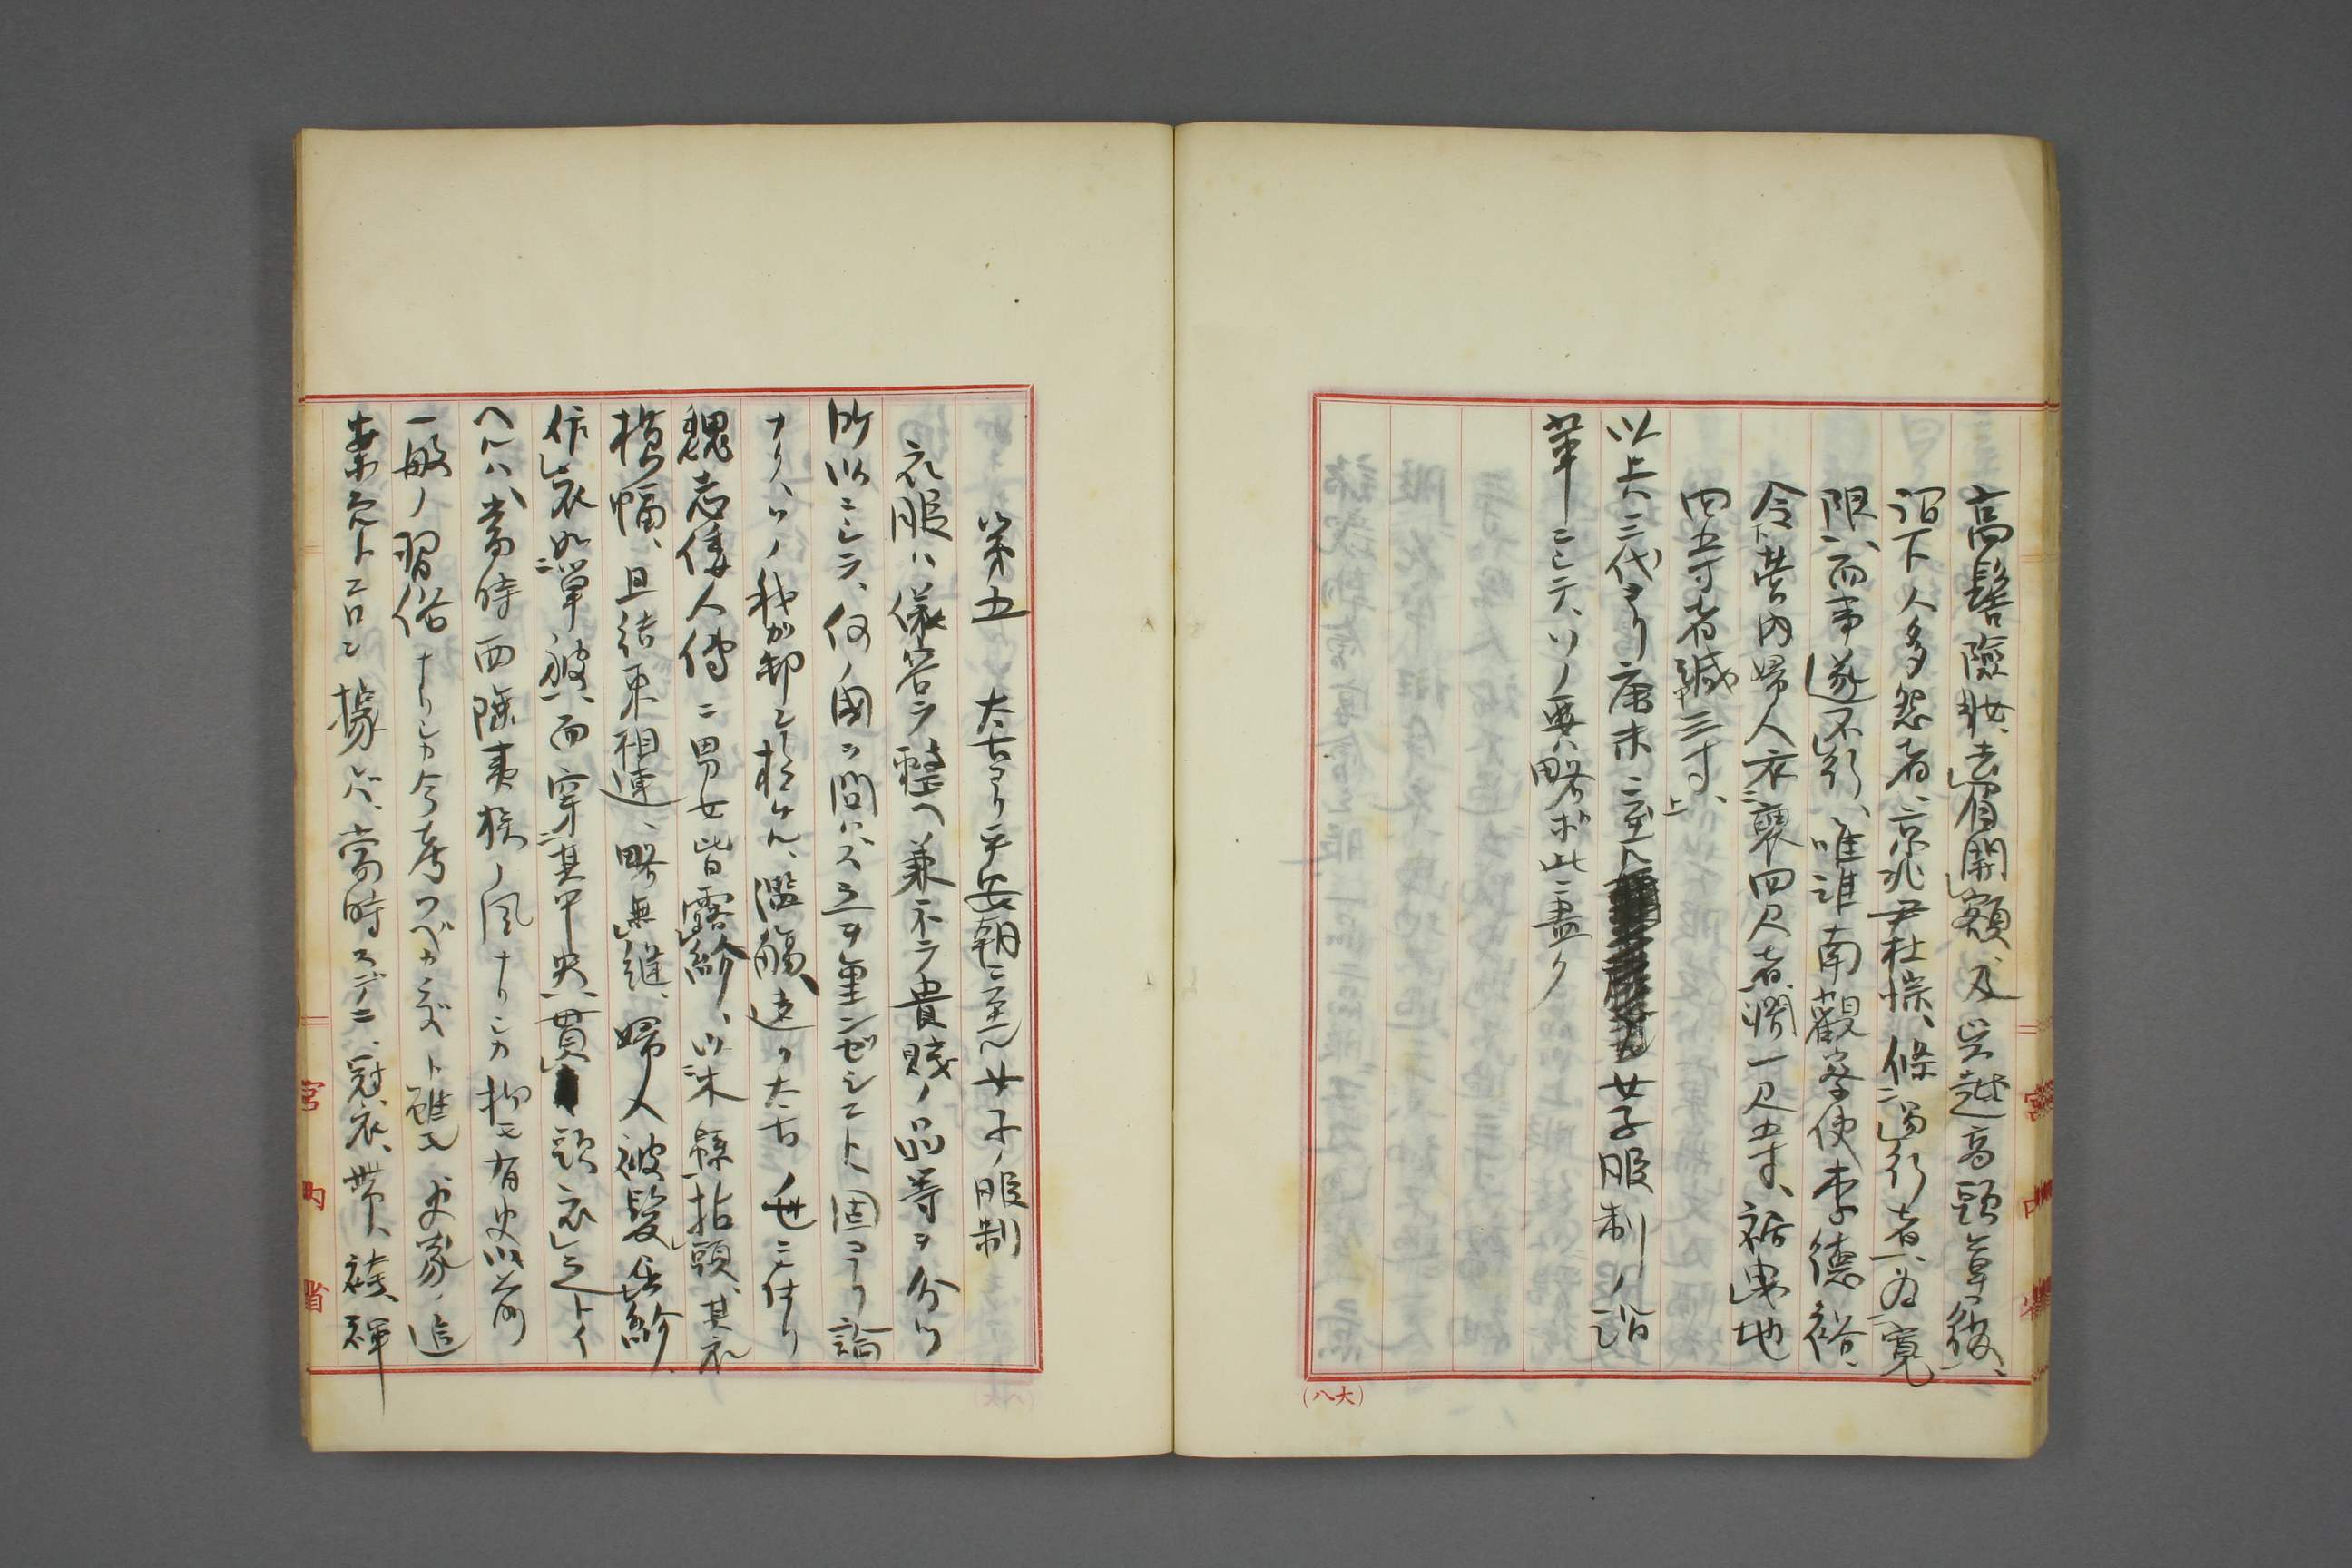 高髻險妝、去眉開額、及呉越高頭草履、
謂下人多怨者、京兆尹杜悰、條易行者、為寛
限、而事遂不行、唯淮南觀察使李德裕、
令管内婦人衣裹四尺者濶一尺五寸、裾曳地
四五寸者減三寸、上
以上ハ三代ヨリ唐末ニ至ル女子服制ノ沿
革ニシテ、ソノ要略ボ此ニ盡ク
(八大)
第五 太古ヨリ平安朝ニ至ル女子ノ服制
衣服ハ儀容ヲ整ヘ兼ネテ貴賤ノ品等ヲ分ツ
所以ニシテ、何ノ國ヲ問ハズ之ヲ重ンゼシコト固ヨリ論
ナク、ソノ我ガ邦ニ於ケル、濫觴遠ク太古ノ世ニ在リ
魏志倭人傳ニ男女皆露紒、以木緜招頭、其衣
横幅、且結束相連、略無縫、婦人被髮屈紒、
作衣如單被、而穿其中央、貫頭衣之トイ
ヘルハ、當時西陲夷族ノ風ナリシカ抑モ有史以前
一般ノ習俗ナリシカ今考フベカラズト雖モ、史家ノ追
素允トコロニ據レバ、當時スデニ、冠、衣、帶、裳、褌
宮内省